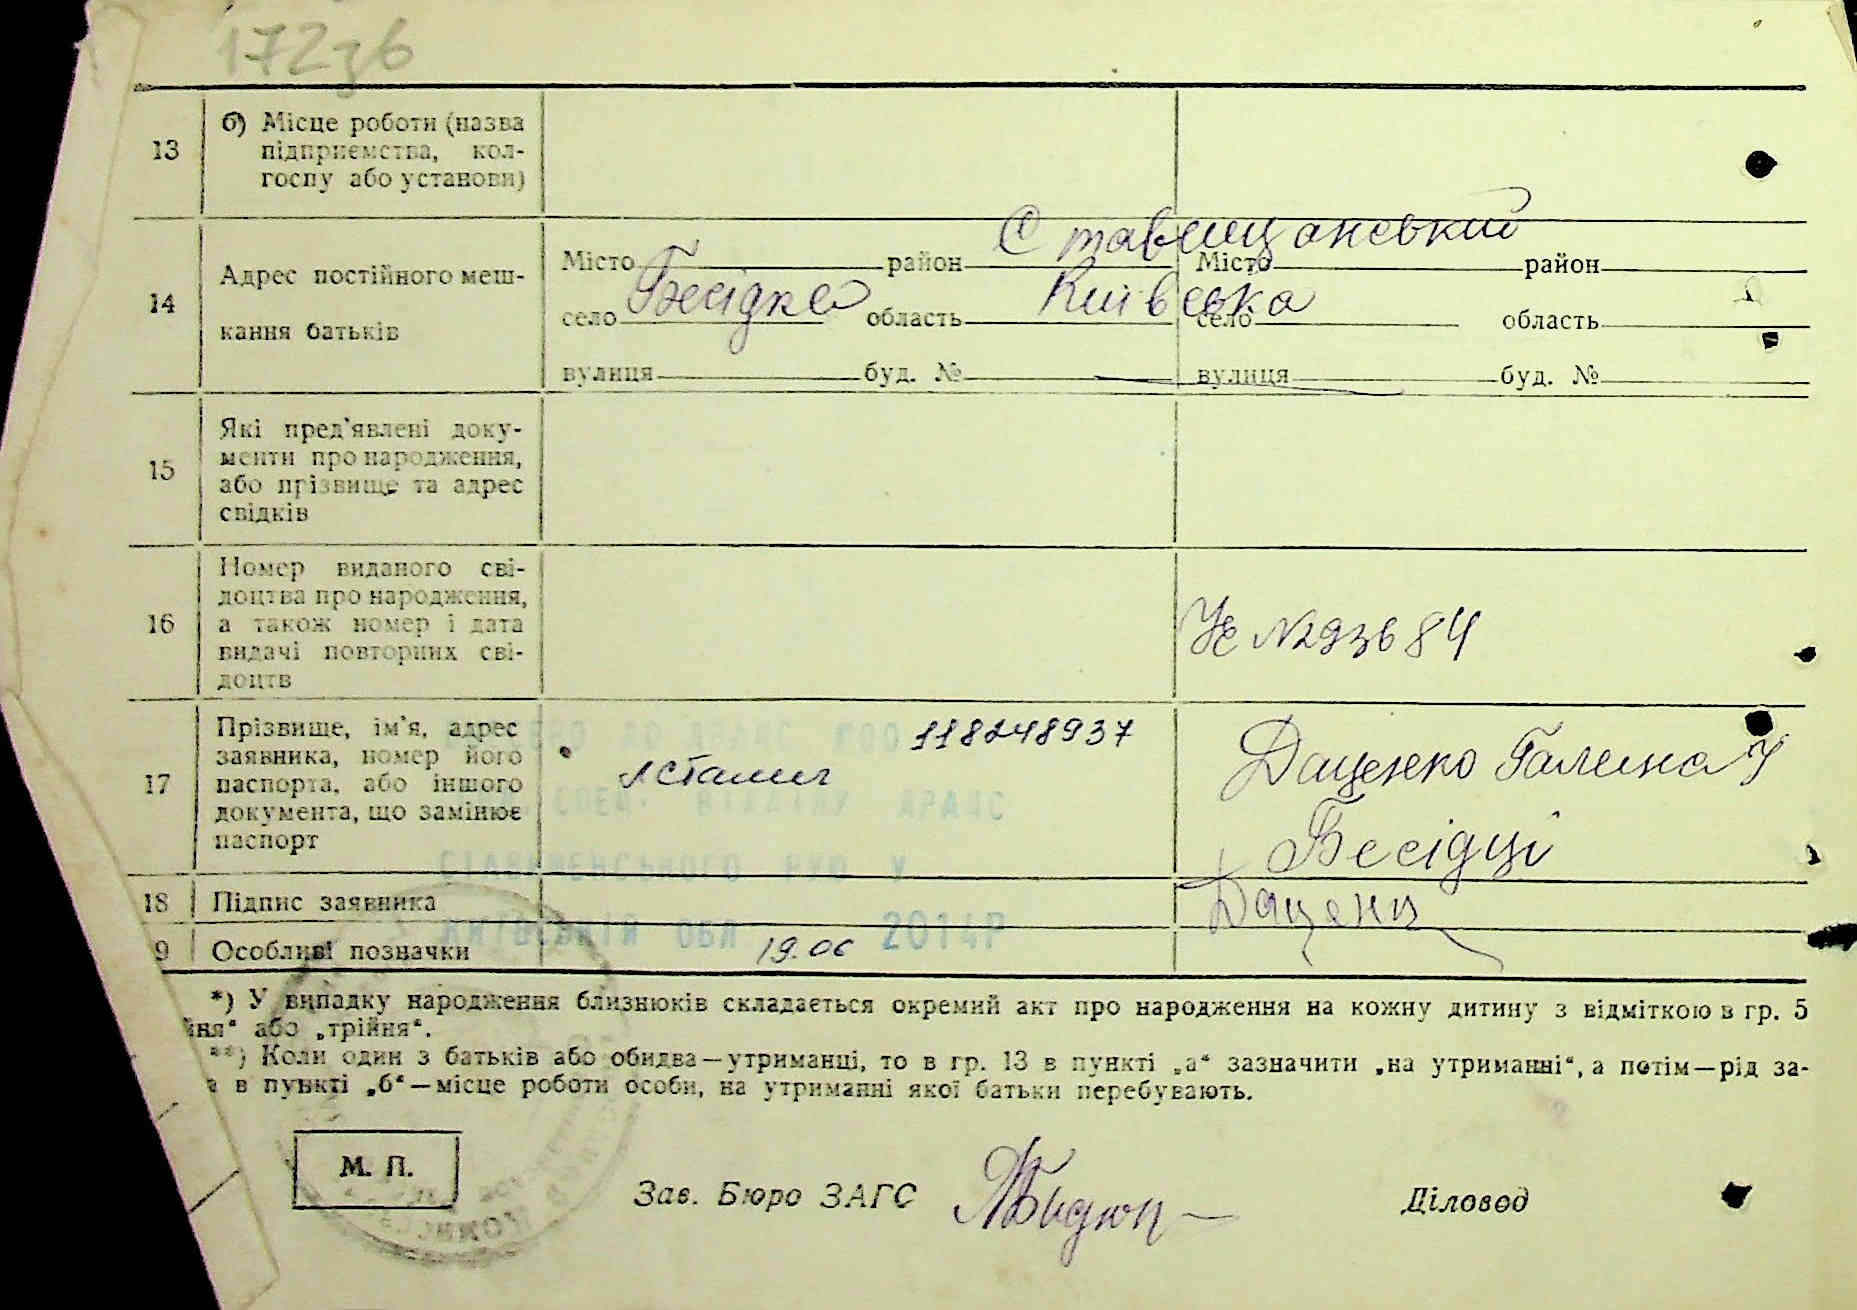 172зб
13
б) Місце роботи (назва
підприємства, кол-
госпу або установи)
14
Адрес постійного меш-
кання батьків
Місто район Ставищанський Місто район
село Бесідка область Київська село область
вулиця буд. № вулиця буд. №
15
Які пред'явлені доку-
менти про народження,
або прізвище та адрес
свідків
16
Номер виданого сві-
доцтва про народження,
а також номер і дата
видачі повторних сві-
доцтв
№293684
17
Прізвище, ім'я, адрес
заявника, номер його
паспорта, або іншого
документа, що замінює
паспорт
118248937
Даценко Галина У
Бесідці
ДО ДРАЦС
ВІДДІЛУ ДРАЦС
СТАВИЩЕНСЬКОГО РУЮ У
КИЇВСЬКІЙ ОБЛ 19.06 2014Р
18 Підпис заявника Даценк
9 Особливі позначки
*) У випадку народження близнюків складається окремий акт про народження на кожну дитину з відміткою в гр. 5
йня" або „трійня".
**) Коли один з батьків або обидва—утриманці, то в гр. 13 в пункті „а" зазначити „на утриманні", а потім—рід за-
а в пункті „б"—місце роботи особи, на утриманні якої батьки перебувають.
М. П.
Зав. Бюро ЗАГС
Діловод